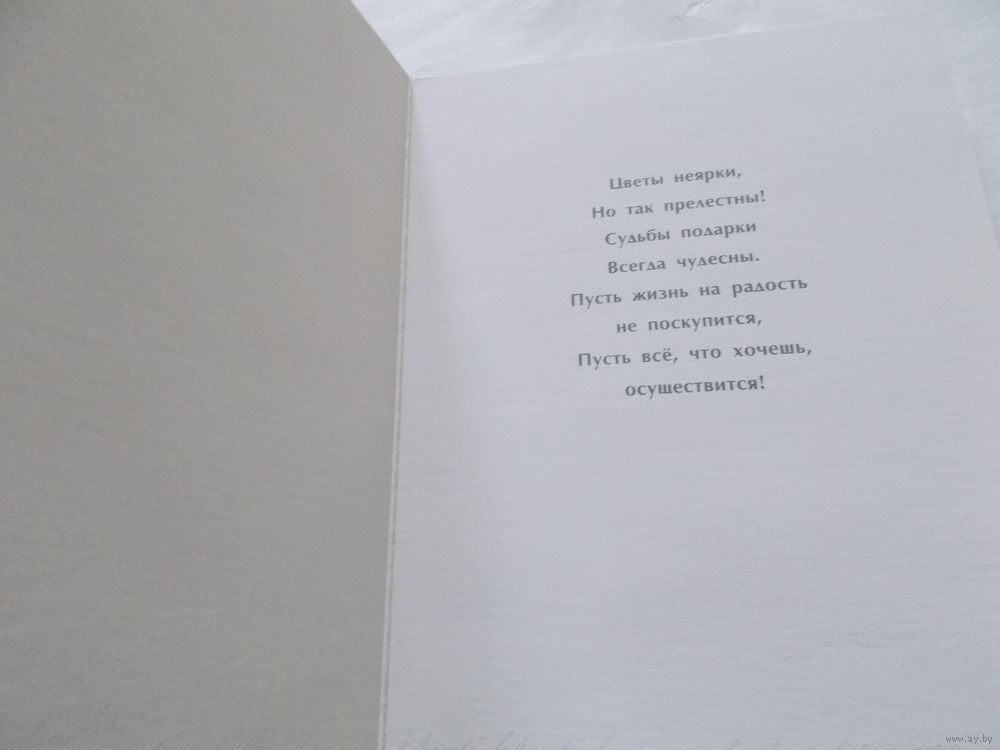 Цветы неярки,
Но так прелестны!
Судьбы подарки
Всегда чудесны.
Пусть жизнь на радость
не поскупится,
Пусть всё, что хочешь,
осуществится!
www.ay.by